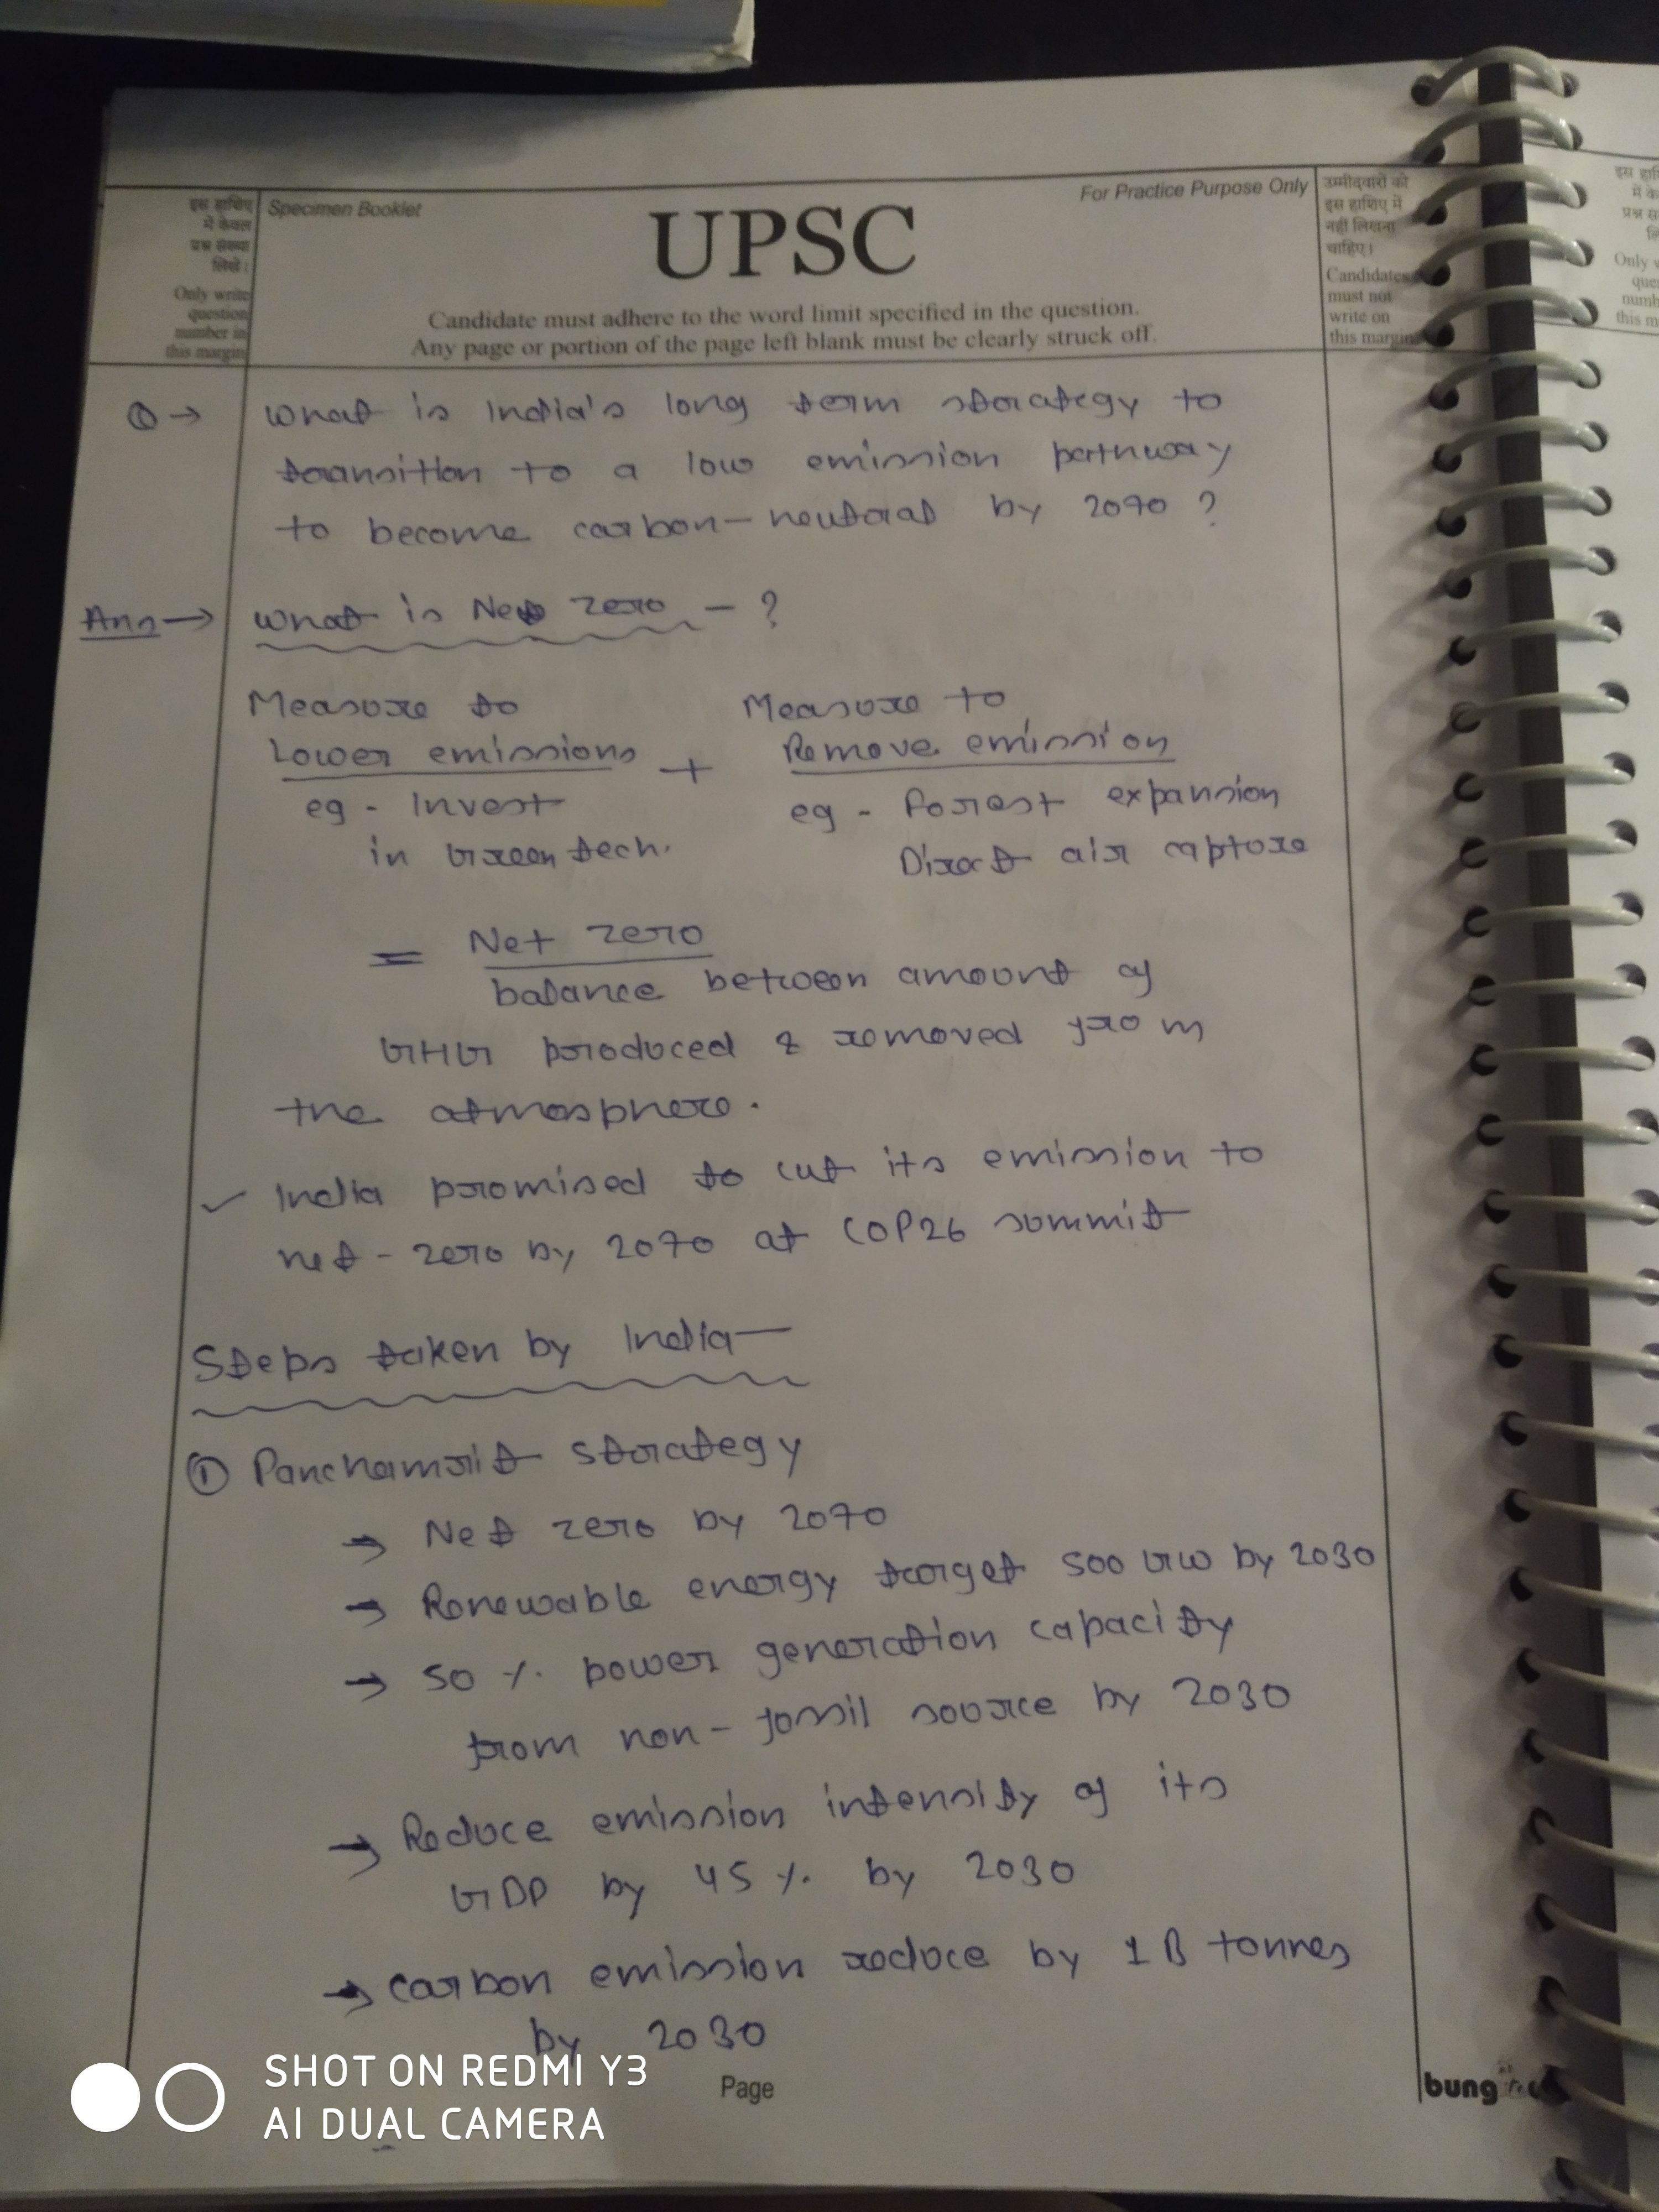 इस हाशिए
में केवल
प्रश्न संख्या
लिखें।
Only write
question
number in
this margin
Specimen Booklet
For Practice Purpose Only
UPSC
Candidate must adhere to the word limit specified in the question.
Any page or portion of the page left blank must be clearly struck off.
उम्मीदवारों को
इस हाशिए में
नहीं लिखना
चाहिए।
Candidates
must not
write on
this margin
Q → What is India's long term strategy to
transition to a low emission pathway
to become carbon-neutral by 2070 ?
Ans → What is Net zero - ?
Measure to Measure to
Lower emissions + Remove emission
eg - Invest eg - Forest expansion
in Green tech. Direct air capture
= Net zero
balance between amount of
GHG produced & removed from
the atmosphere.
✓ India promised to cut its emission to
net - zero by 2070 at COP26 summit
Steps taken by India —
① Panchamrit strategy
→ Net zero by 2070
→ Renewable energy target 500 GW by 2030
→ 50 % power generation capacity
from non - fossil source by 2030
→ Reduce emission intensity of its
GDP by 45 % by 2030
→ Carbon emission reduce by 1 B tonnes
by 2030
SHOT ON REDMI Y3
AI DUAL CAMERA
Page